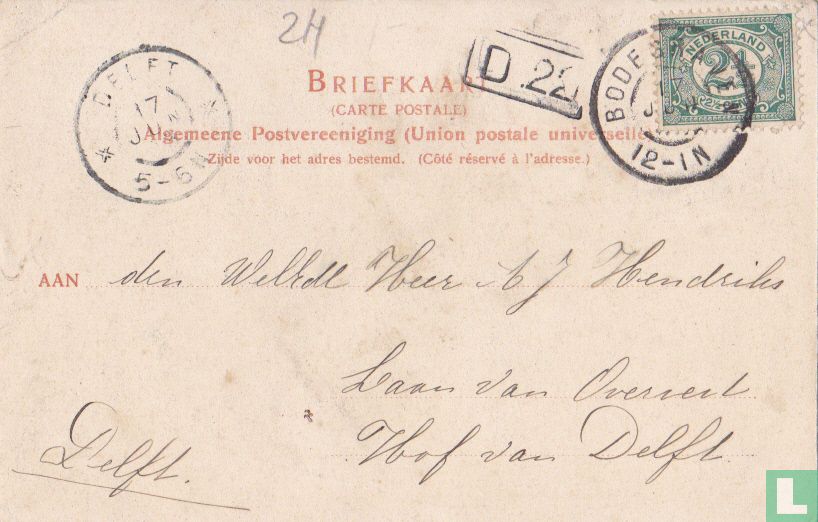 2H
BRIEFKAART
(CARTE POSTALE)
Algemeene Postvereeniging (Union postale universelle
Zijde voor het adres bestemd. (Côté réservé à l'adresse.)
DELFT
17 JUN
5-6N
D 22
BODE
12-1N
NEDERLAND
2½
AAN den WelEdl Heer A J Hendriks
Laan van Overvest
Hof van Delft
Delft.
L